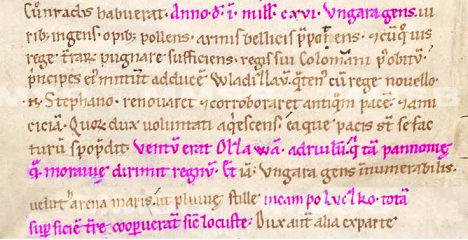 Cunradus habuerat. Anno d. i. mill. c.xvi. Ungara gens. vi
rib; ingens. opib; pollens. armis bellicis p̄potens. ⁊ cū quovis
rege t̄raꝝ pugnare sufficiens. regis sui Colomāni p obitū.
pncipes ei mittūt ad ducē Wladizlauū. qtenꝰ cū rege novello
n. Stephano. renovaret ⁊ corroboraret antiquā pacē. ⁊ ami
ciciā. Quoꝝ dux voluntati acqescens. ea que pacis st̄ se fac
turū spopdit. Ventū erat wā. ad rivulū. q tā pannonię
q̄ moravię dirimit regnū. Et iā. Ungara gens innumerabilis.
velut arena maris. ut pluvię stille. in campo luczko. totā
supficiē tr̄e coopuerat sic̄ locuste. Dux aūt alia ex parte